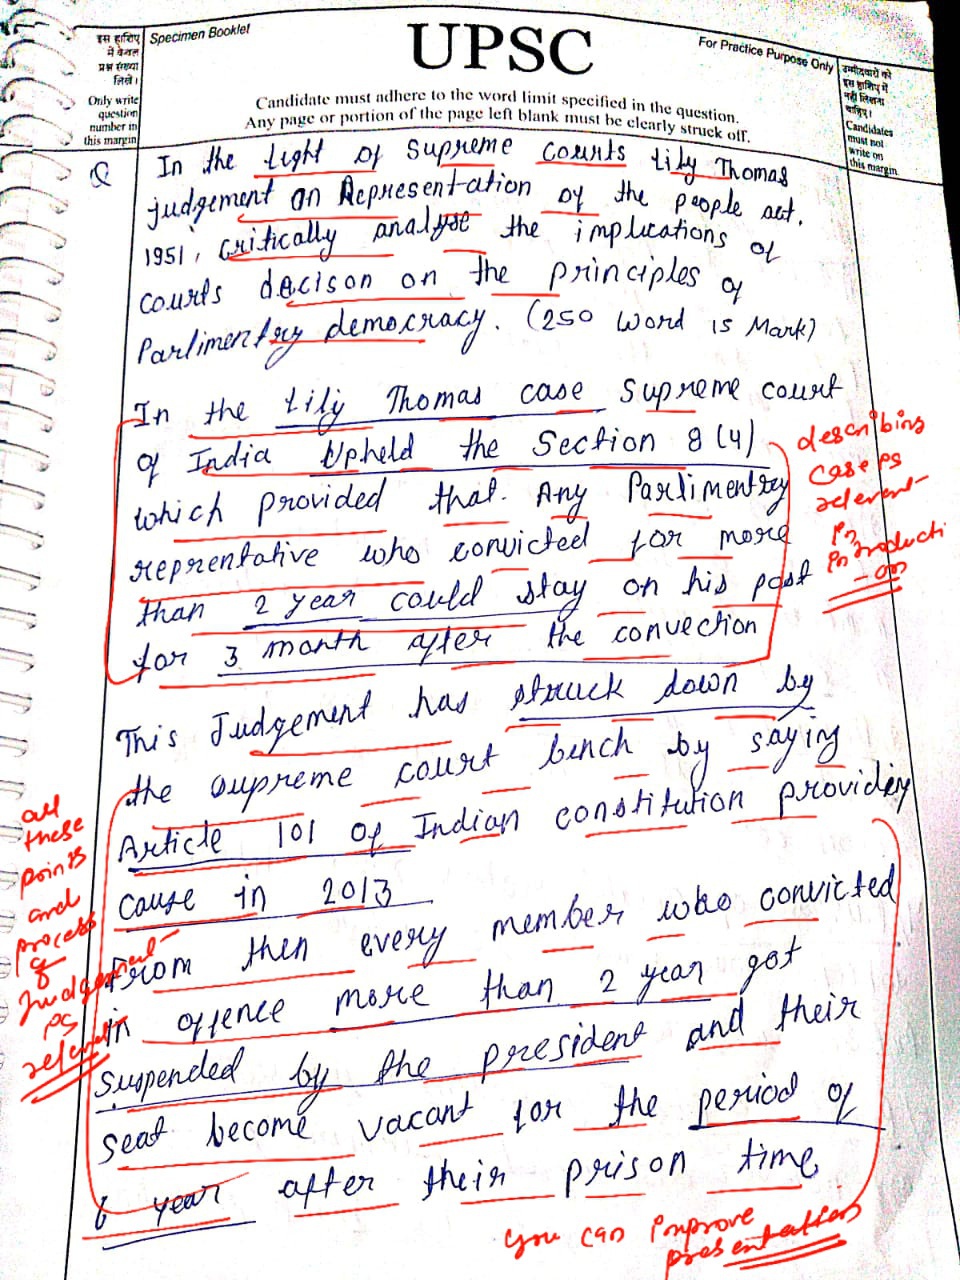 इस हाशिए
में केवल
प्रश्न संख्या
लिखें।
Only write
question
number in
this margin
Specimen Booklet
UPSC
For Practice Purpose Only
Candidate must adhere to the word limit specified in the question.
Any page or portion of the page left blank must be clearly struck off.
उम्मीदवारों को
इस हाशिए में
नहीं लिखना
चाहिए।
Candidates
must not
write on
this margin
Q
In the light of Supreme courts Lily Thomas
judgement on Representation of the people act.
1951, critically analyse the implications of
courts decison on the principles of
Parlimentry democracy. (250 word 15 Mark)
In the Lily Thomas case Supreme court
of India Upheld the Section 8 (4)
which provided that. Any Parlimentry
reprentative who convicted for more
than 2 year could stay on his post
for 3 month after the convection
describing
case is
relevent
in
introducti
-on
This Judgement has struck down by
the supreme court bench by saying
Article 101 of Indian constitution providing
cause in 2013
From then every member who convicted
in offence more than 2 year got
suspended by the president and their
seat become vacant for the period of
6 year after their prison time
all
these
points
and
process
of
Judgement
is
relevent
you can improve
presentation